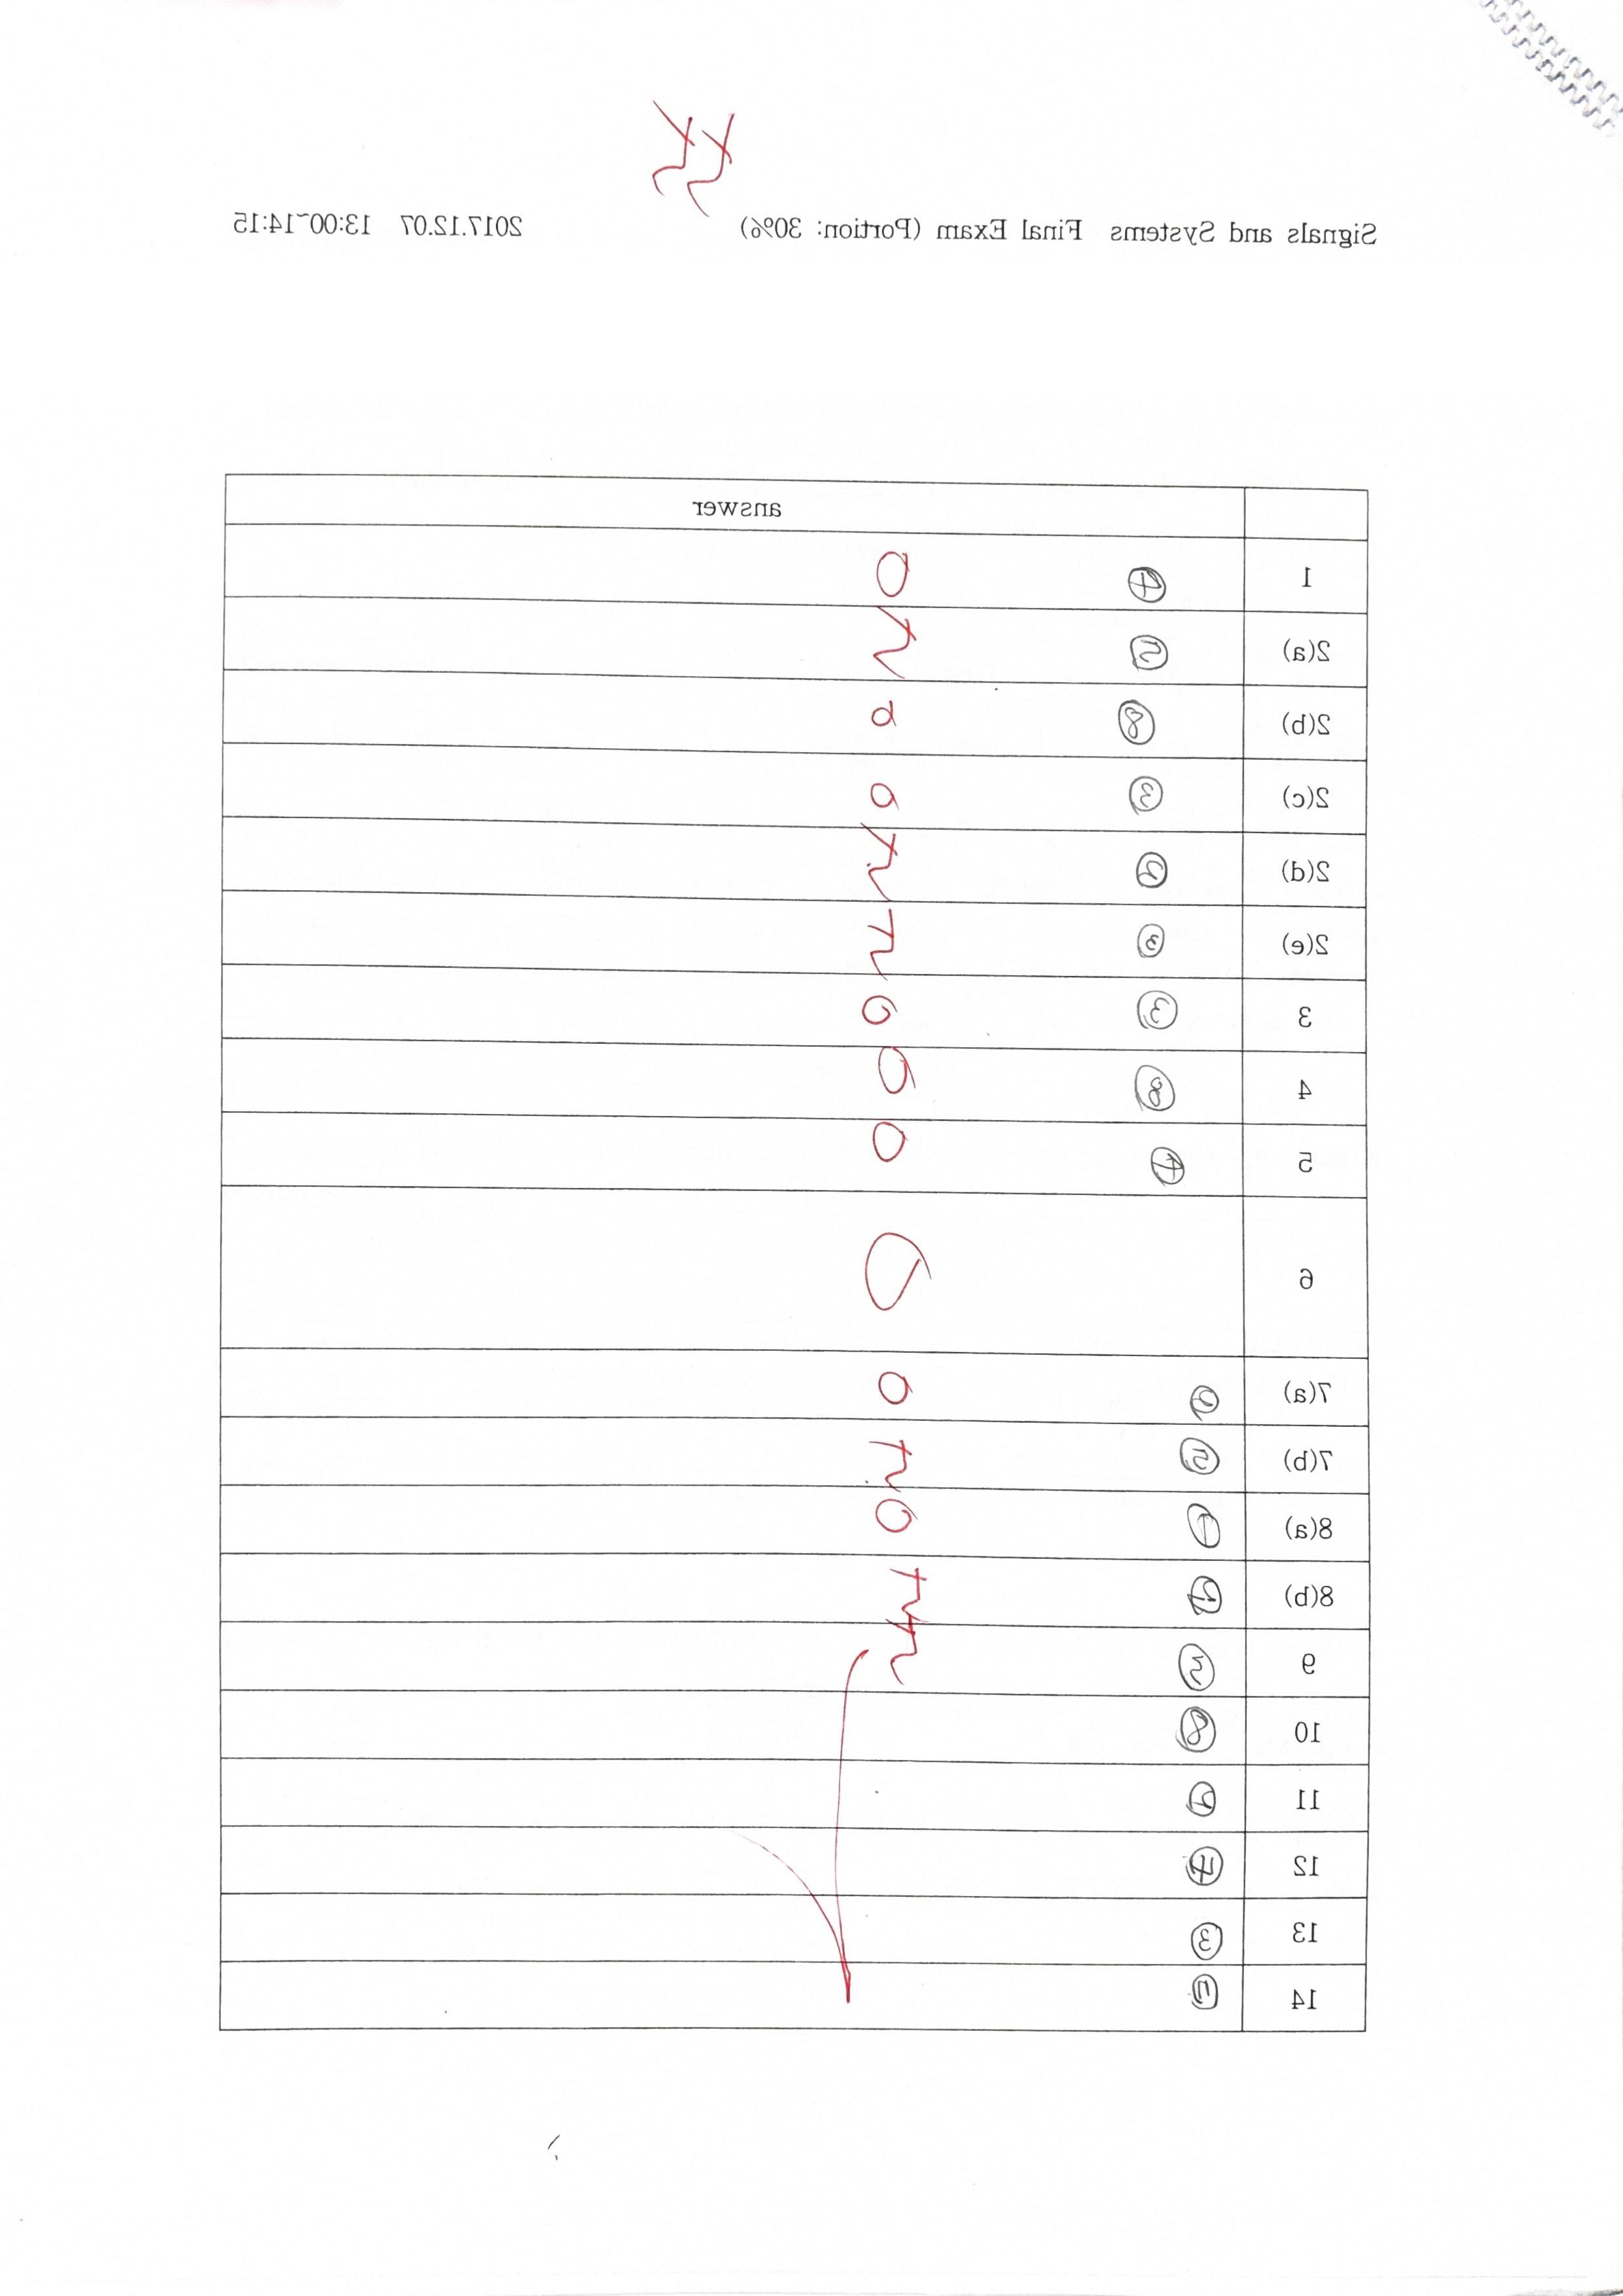 Signals and Systems Final Exam (Portion: 30%) 2017.12.07 13:00~14:15
answer
1 ④
2(a) ⑤
2(b) ⑧
2(c) ③
2(d) ②
2(e) ③
3 ③
4 ⑧
5 ④
6
7(a) ②
7(b) ⑤
8(a) ①
8(b)
9
10 ⑧
11
12 ④
13 ③
14